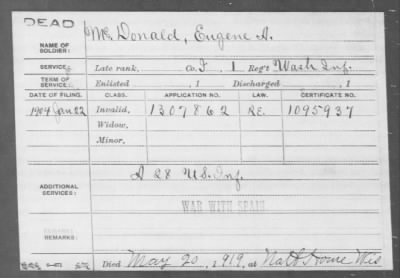 DEAD
NAME OF SOLDIER: McDonald, Eugene A.
SERVICE: Late rank, Co. I, 1 Reg't Wash Inf.
TERM OF SERVICE: Enlisted , 1 Discharged , 1
DATE OF FILING. CLASS. APPLICATION NO. LAW. CERTIFICATE NO.
1904 Jan 22 Invalid, 1307862 R.E. 1095937
Widow,
Minor,
ADDITIONAL SERVICES: A 28 U.S. Inf.
WAR WITH SPAIN
REMARKS:
Died May 20, 1919, at Nat H Home Wis